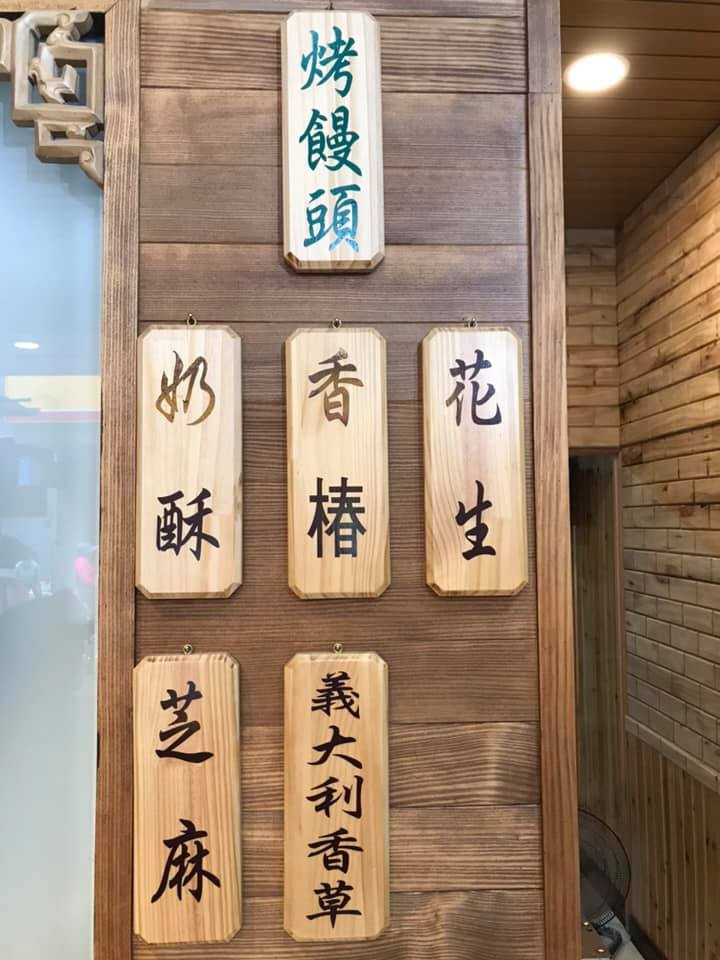 烤饅頭
花生
香椿
奶酥
義大利香草
芝麻